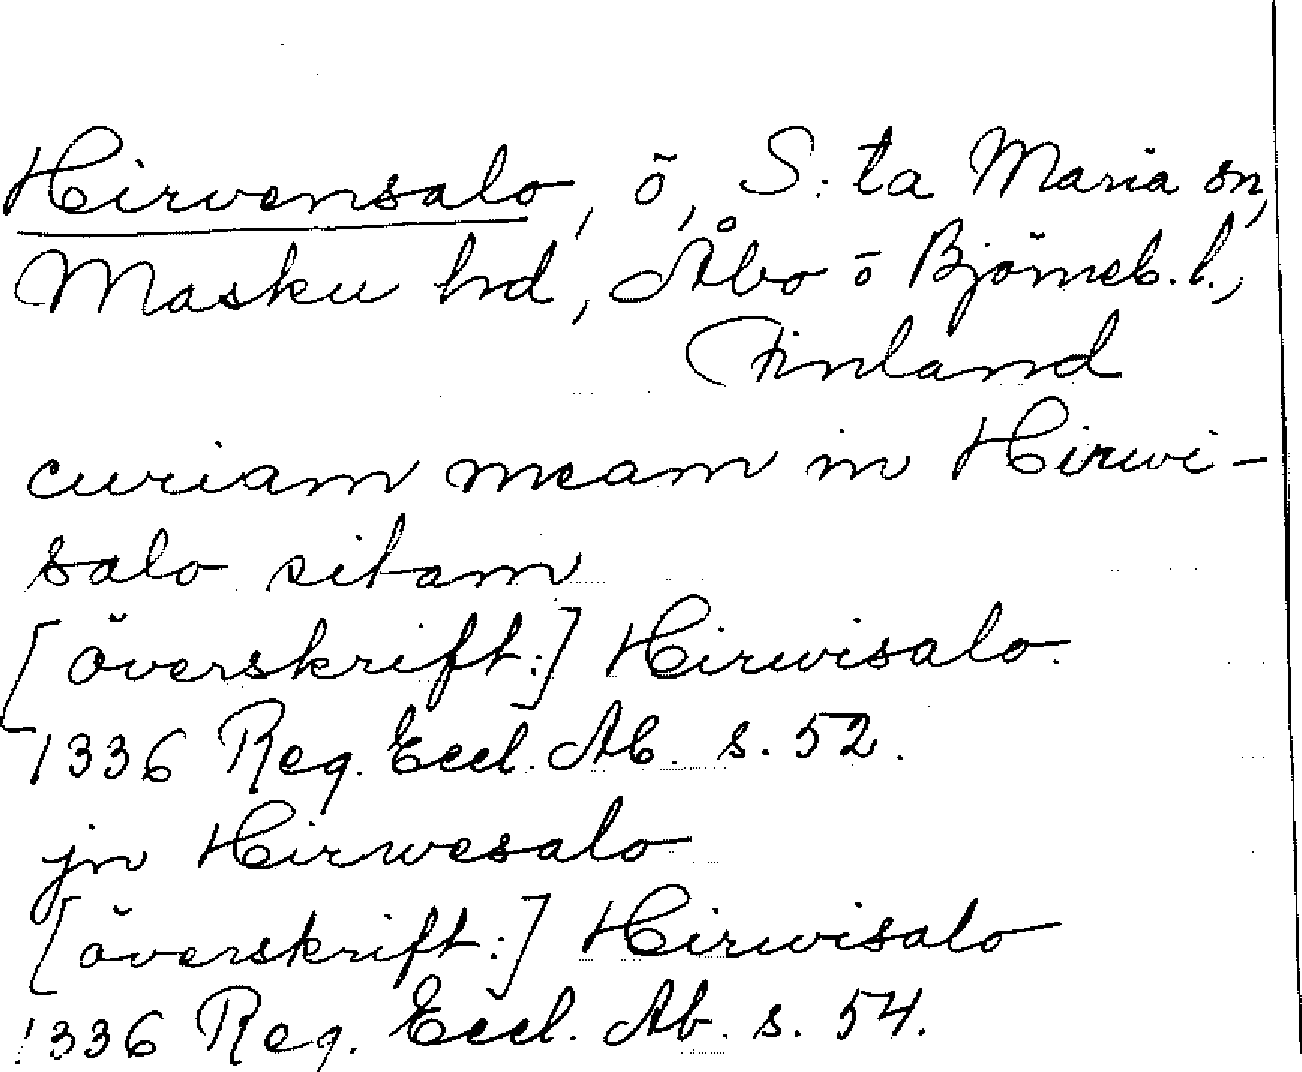 Hirvensalo, ö, S:ta Maria sn,
Masku hd, Åbo o Björneb. l.,
Finland
curiam meam in Hirwi-
salo sitam
[överskrift:] Hirwisalo.
1336 Reg. Eccl. Ab. s. 52.
jn Hirwesalo
[överskrift:] Hirwisalo
1336 Reg. Eccl. Ab. s. 54.